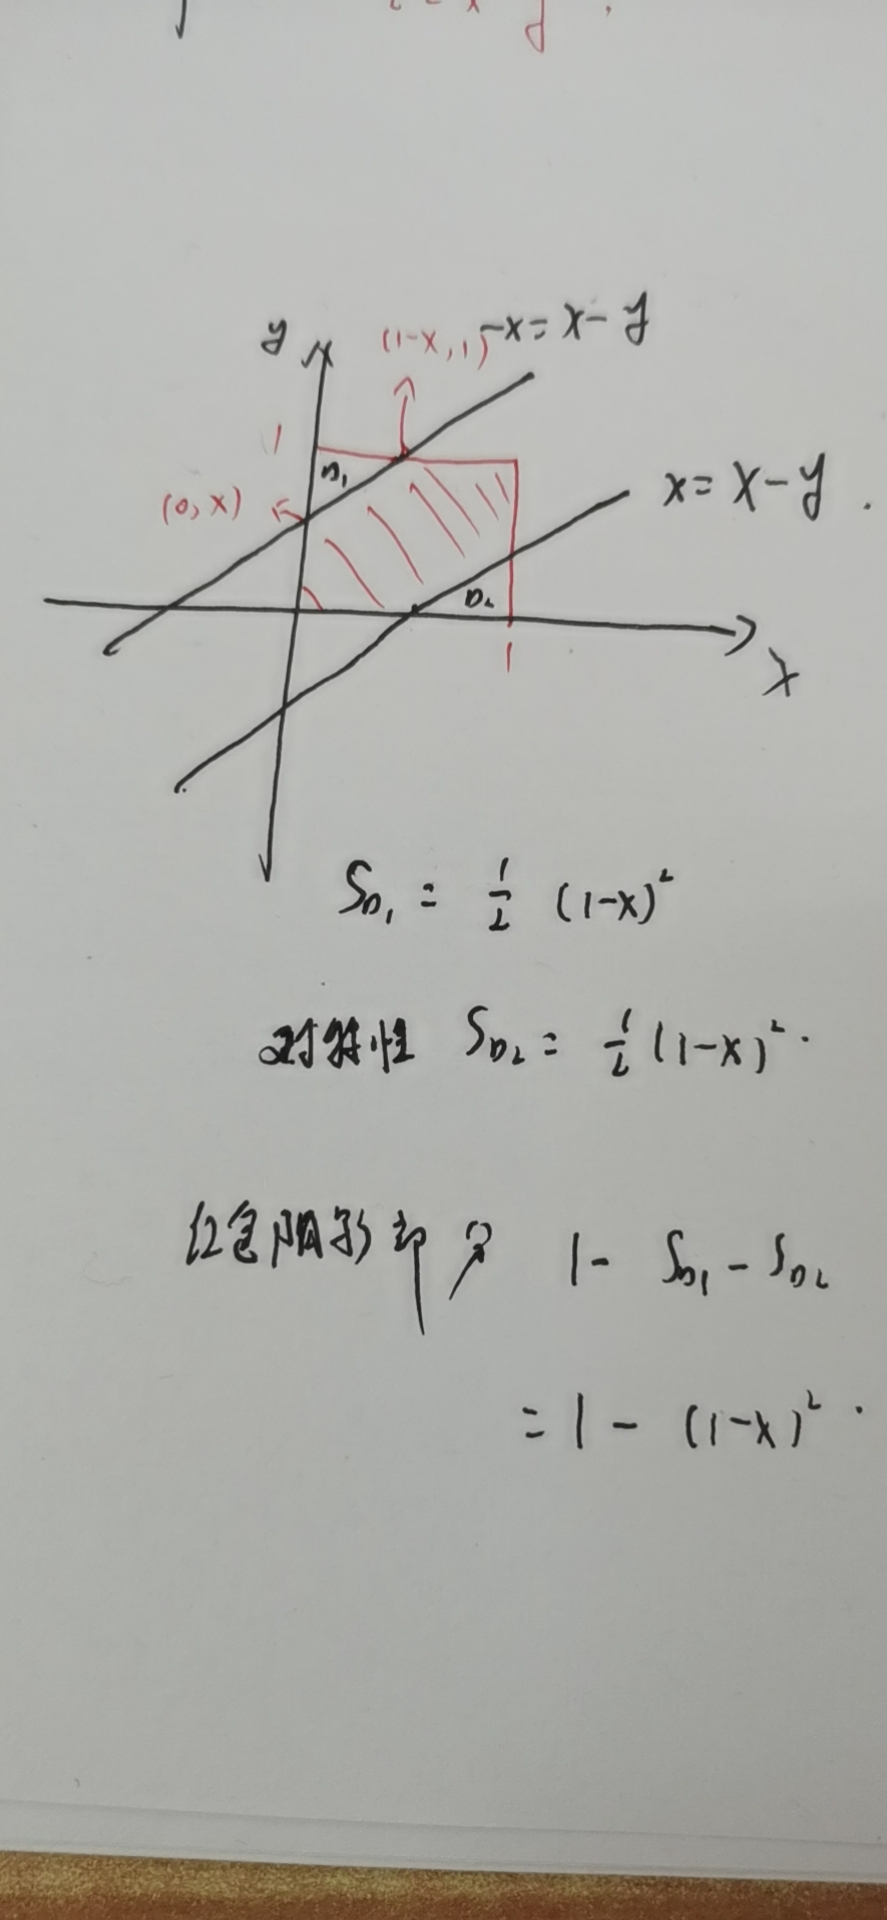 y
(1-x,1)
-x=X-y
1
D₁
(0,x)
x=X-y.
D₂
1
X
S_{D₁} = ½ (1-x)²
对称性 S_{D₂} = ½(1-x)².
红色阴影部分 1- S_{D₁} - S_{D₂}
=1-(1-x)².